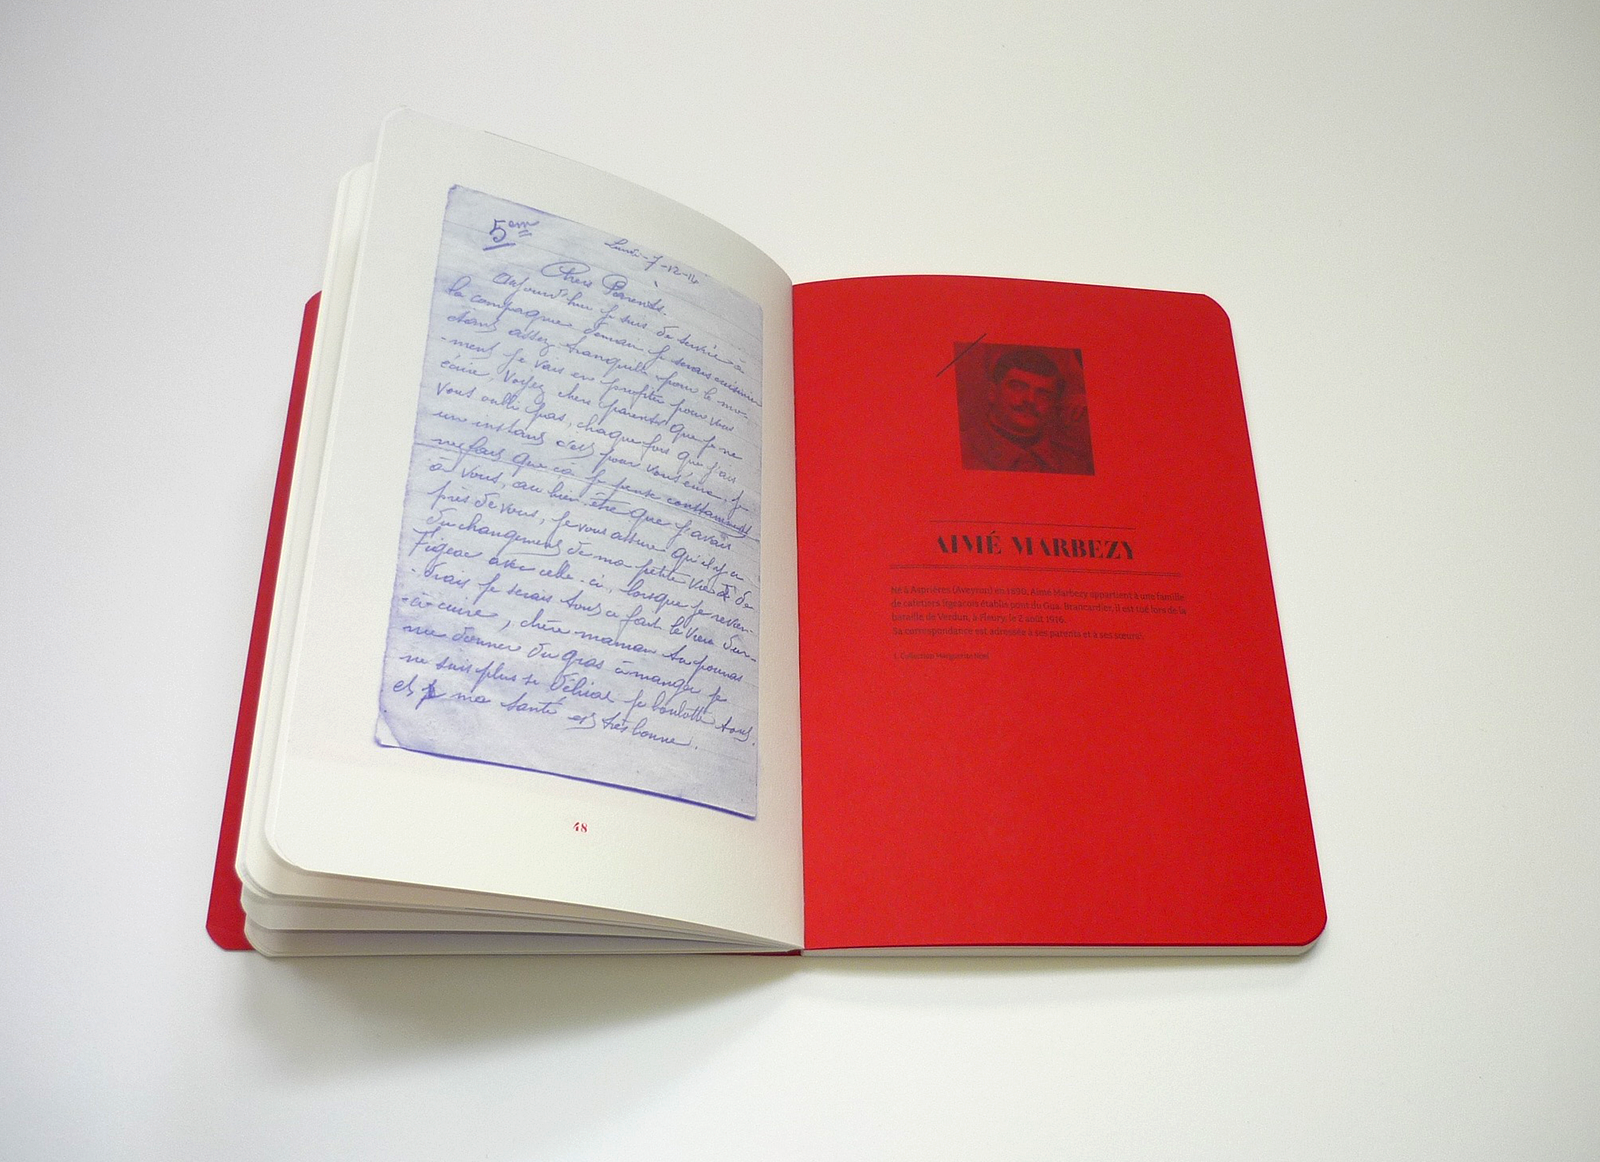 5em
Lundi-7-12-14
Chers Parents.
Aujourd'hui je suis de service à
la compagnie demain je serais cuisinier
étant assez tranquille pour le mo-
-ment je vais en profiter pour vous
écrire, voyez chers parents que je ne
vous oubli pas, chaque fois que j'ais
un instant c'est pour vous écrire, je
ne fais que ca je pense constamment
à vous, au bien être que j'avais
près de vous, je vous assure qu'il y a
du changement de ma petite vie de
Figeac avec celle-ci, lorsque je revien-
-drais je serais tous a fait le vieux dur-
-à-cuire, chère maman tu pourras
me donner du gras à manger je
ne suis plus si délicat je boulotte tous.
et ma santé est très bonne.
48
AIMÉ MARBEZY
Né à Asprières (Aveyron) en 1890, Aimé Marbezy appartient à une famille
de cafetiers figeacois établis pont du Gua. Brancardier, il est tué lors de la
bataille de Verdun, à Fleury, le 2 août 1916.
Sa correspondance est adressée à ses parents et à ses sœurs¹.
1. Collection Marguerite Noël